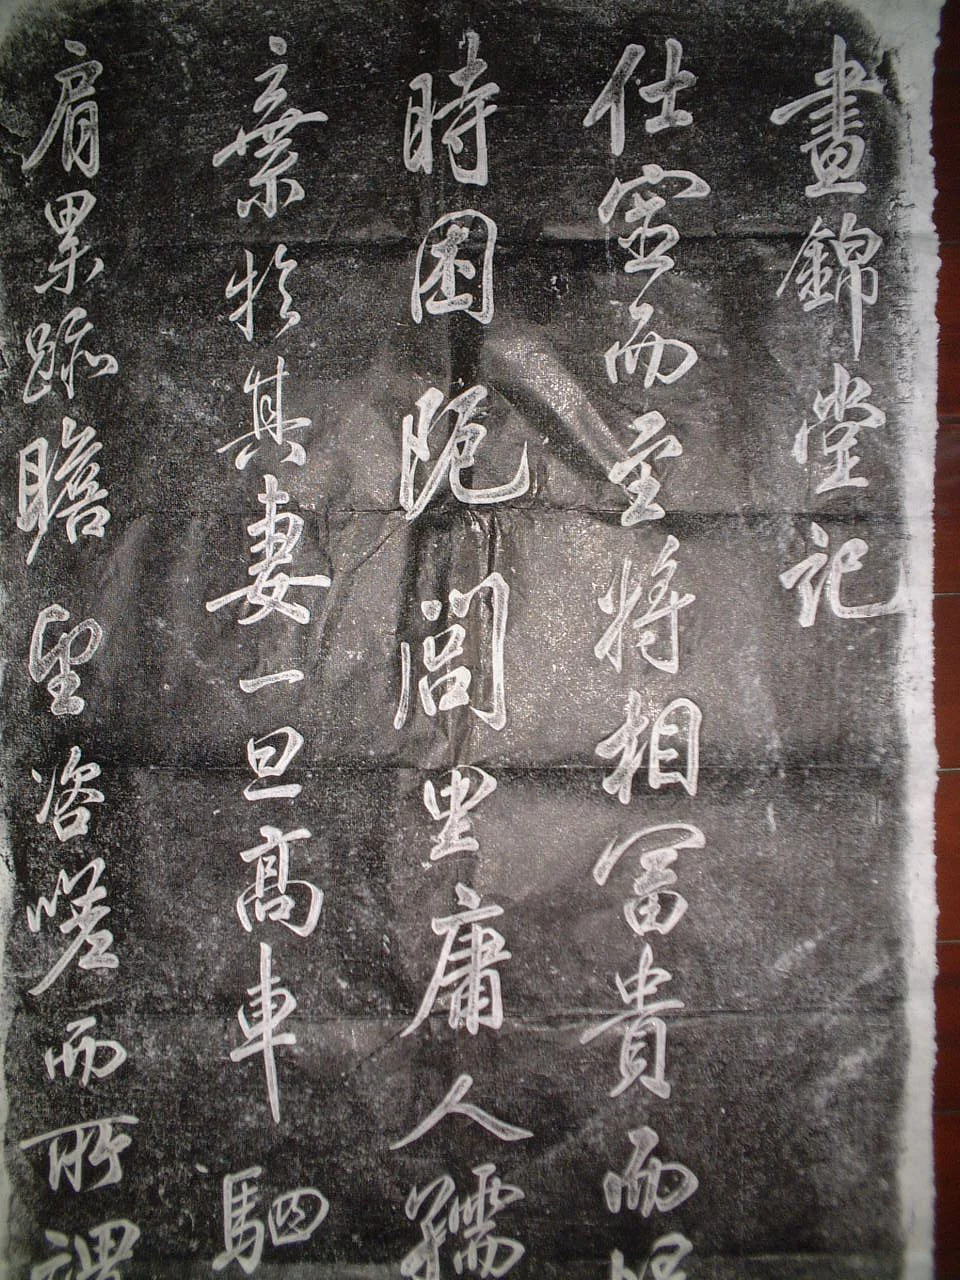 晝錦堂記
仕宦而至將相富貴而
時困阨閭里庸人孺
棄於其妻一旦高車駟
肩累跡瞻望咨嗟而所謂